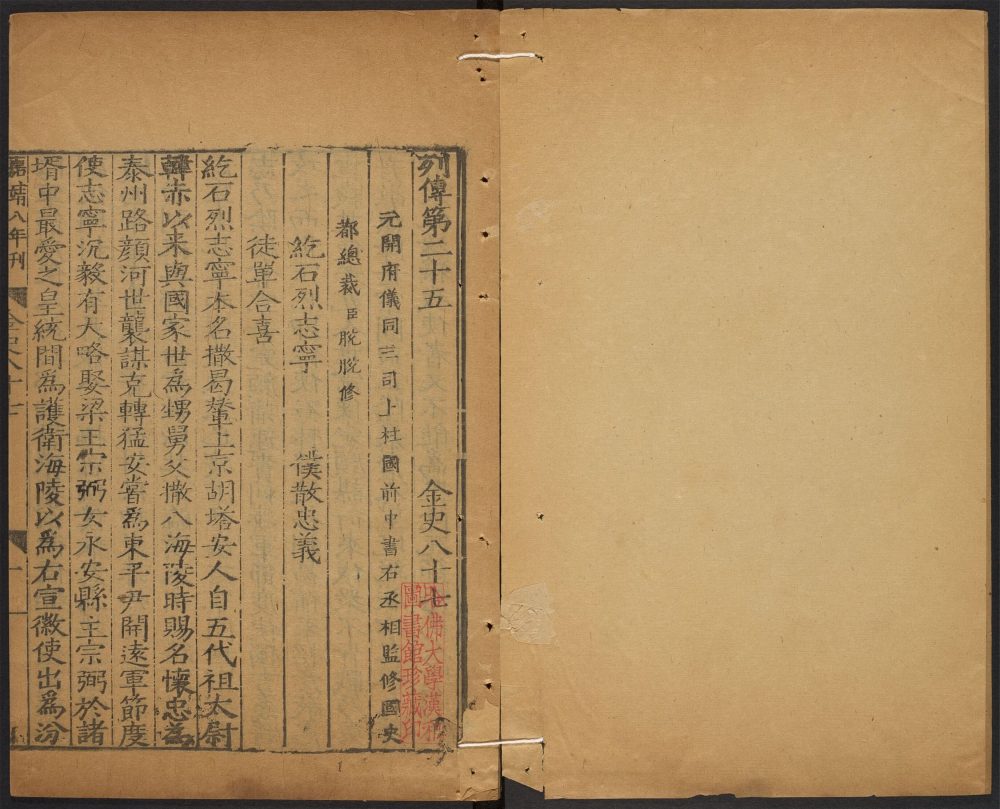 列傳第二十五 金史八十七
元開府儀同三司上柱國前中書右丞相監修國史
都總裁臣脫脫修
紇石烈志寧 僕散忠義
徒單合喜
紇石烈志寧本名撒曷輦上京胡塔安人自五代祖太尉
韓赤以來與國家世為甥舅父撒八海陵時賜名懷忠為
泰州路顏河世襲謀克轉猛安嘗為東平尹開遠軍節度
使志寧沉毅有大略娶梁王宗弼女永安縣主宗弼於諸
壻中最愛之皇統間為護衛海陵以為右宣徽使出為汾
嘉靖八年刊
哈佛大學漢和
圖書館珍藏印